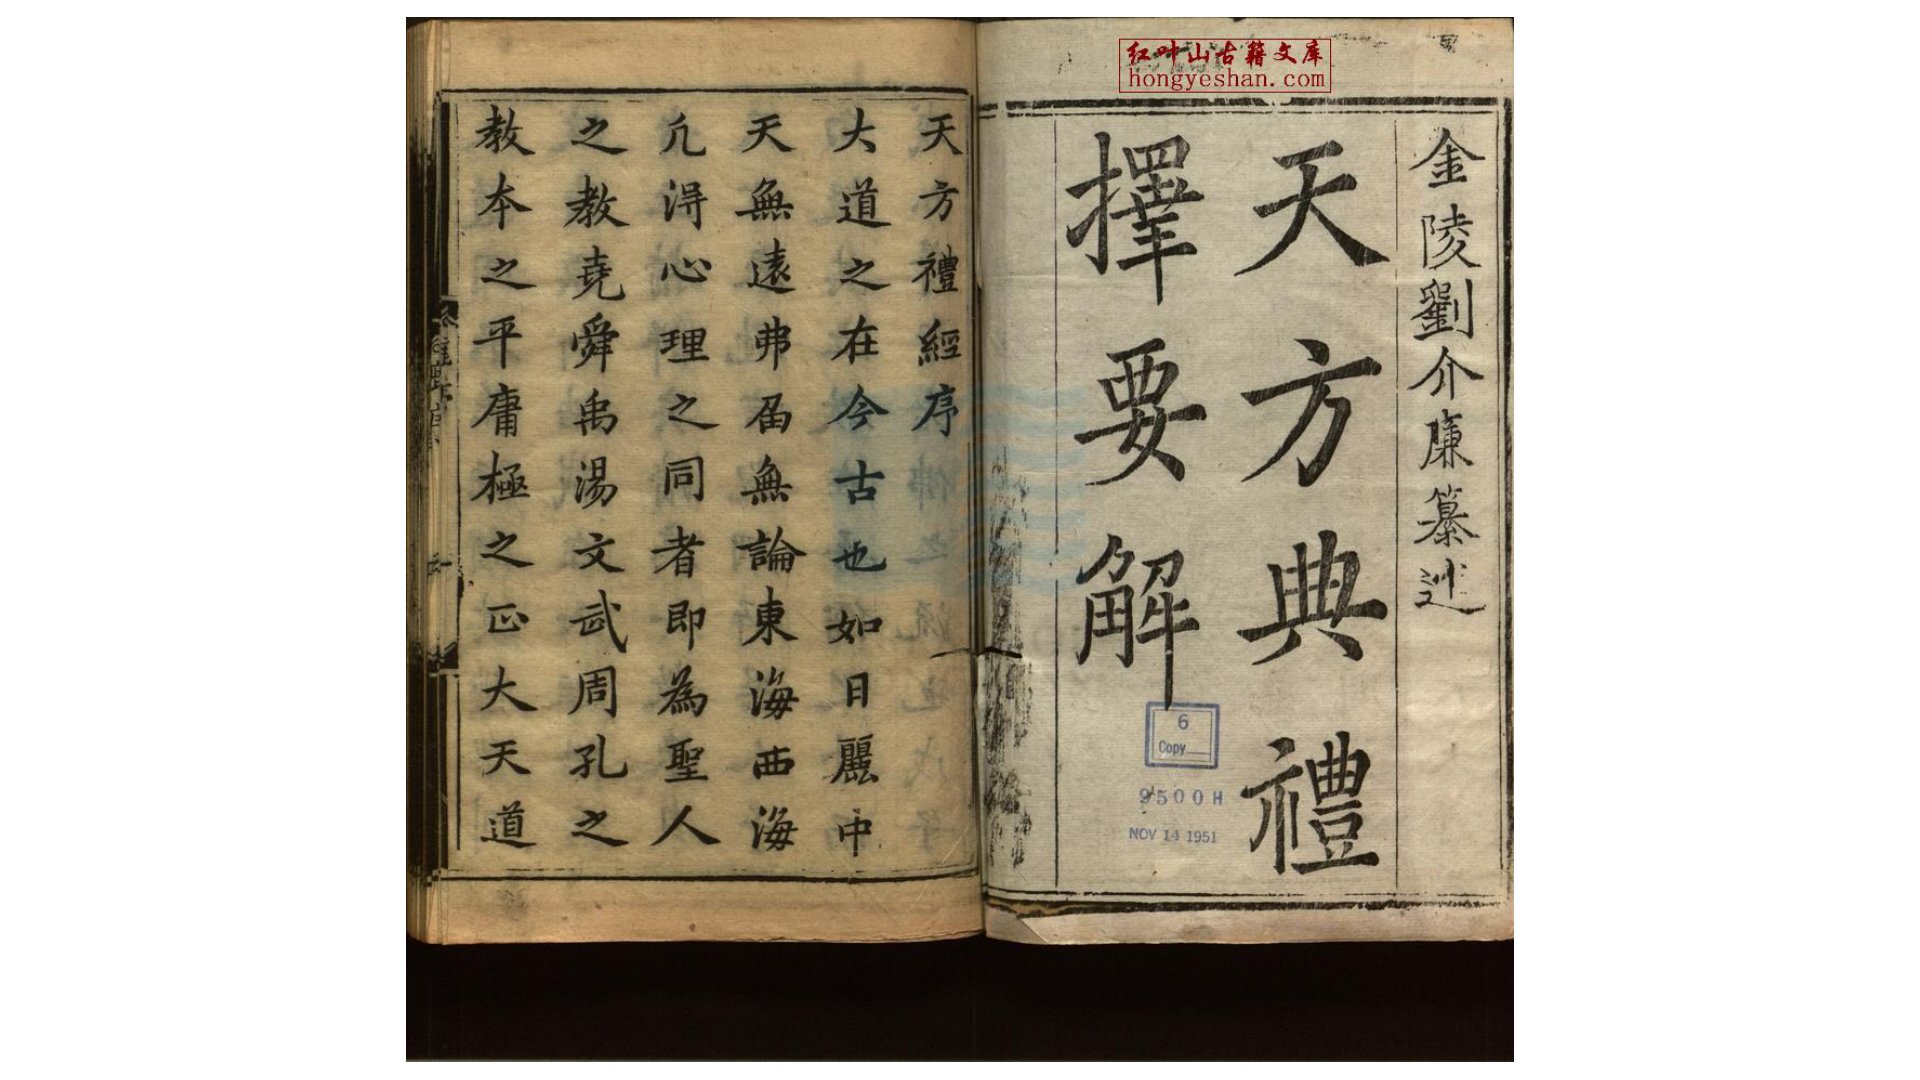 红叶山古籍文库
hongyeshan.com
金陵劉介廉纂述
天方典禮
擇要解
6
Copy
9500H
NOV 14 1951
天方禮經序
大道之在今古也如日麗中
天無遠弗屆無論東海西海
凢得心理之同者即為聖人
之教堯舜禹湯文武周孔之
教本之平庸極之正大天道